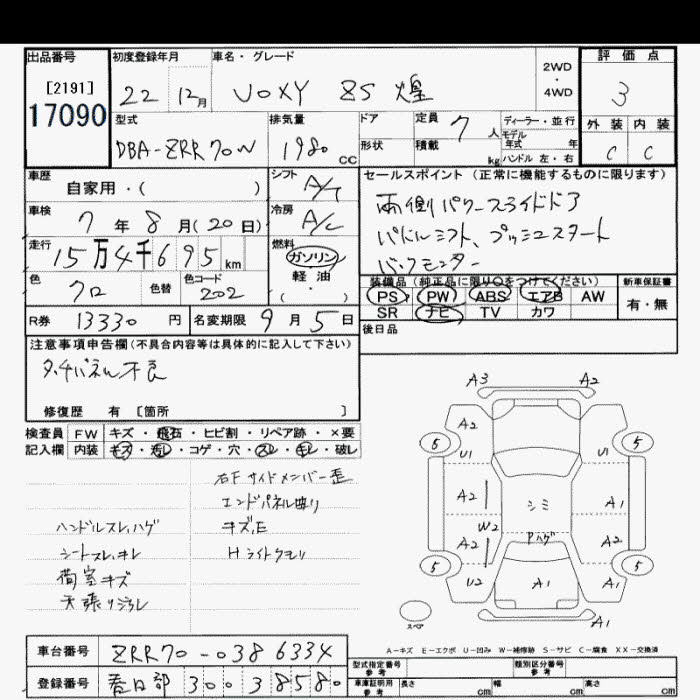 出品番号 初度登録年月 車名・グレード 2WD ・ 4WD 評価点
[2191] 22 12月 VOXY ZS 煌 3
17090
型式 排気量 ドア 定員 7 人 ディーラー・並行 外装 内装
DBA-ZRR70W 1980 CC 形状 積載 kg モデル年式 年 ハンドル 左・右 C C
車歴 自家用・( ) シフト A/T セールスポイント(正常に機能するものに限ります)
車検 7年8月(20日) 冷房 A/C 両側パワースライドドア
走行 15万4千695km 燃料 ガソリン 軽油 ・( ) パドルシフト、プッシュスタート
バックモニター
色 クロ 色替 色コード 202 装備品(純正品に限り○をつけてください) 新車保証書
PS PW ABS エアB AW 有・無
R券 13330円 名変期限 9月5日 SR ナビ TV カワ
後日品
注意事項申告欄(不具合内容等は具体的に記入して下さい)
タッチパネル不良
修復歴 有 [箇所 ]
検査員 FW キズ・飛石・ヒビ割・リペア跡・×要
記入欄 内装 キズ・汚レ・コゲ・穴・スレ・キレ・破レ
右Fサイドメンバー歪
エンドパネル曲り
ハンドルスレ、ハゲ キズ、E
シートスレ、キレ Hライトクモリ
荷室キズ
天張リ
A3 A2
A2
5 U1 U1 5
A2 シミ A1
W2 Pハゲ
A2 A2
5 U2 A1 A1 5
スペア A1
A-キズ E-エクボ U-凹み W-補修跡 S-サビ C-腐食 XX-交換済
車台番号 ZRR70-0386334 型式指定番号 参考 類別区分番号 参考
登録番号 春日部 300 3 8580 車庫証明用 参考 長さ cm 幅 cm 高さ cm